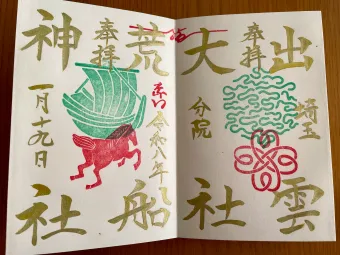 出雲
奉拝
埼玉
大社
分院
荒船
奉拝
令和八年
神社
一月十九日